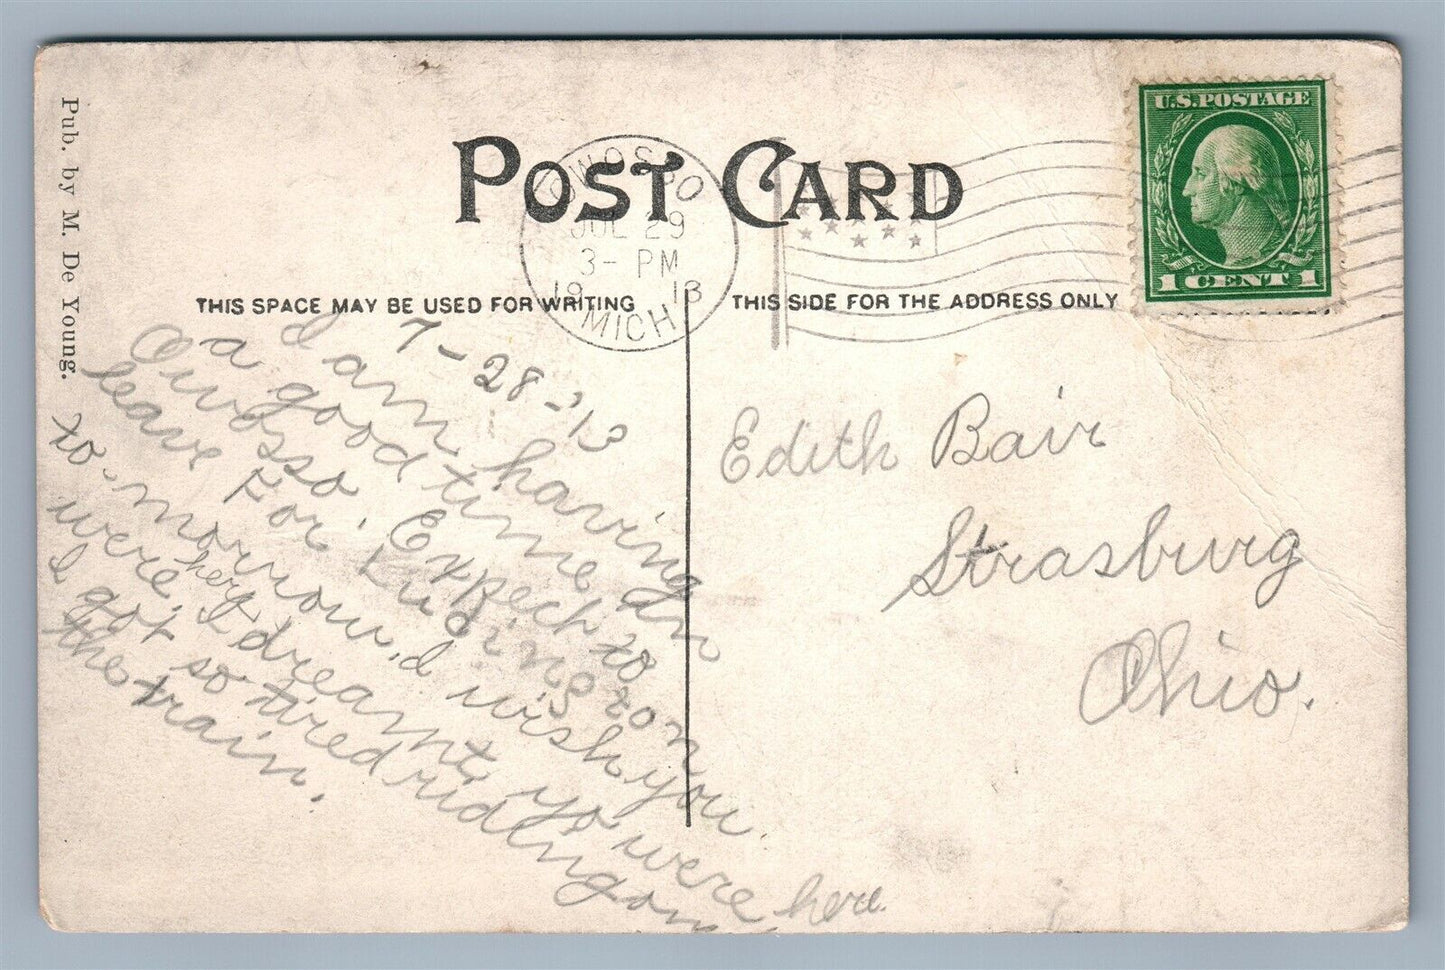 Pub. by M. De Young.
POST CARD
OWOSSO
JUL 29
3- PM
19 13
MICH
U.S. POSTAGE
1 CENT 1
THIS SPACE MAY BE USED FOR WRITING
THIS SIDE FOR THE ADDRESS ONLY
7-28-'13
I am having
a good time In
Owosso. Expect to
leave For Ludington
to-morrow. I wish you
were here. I dreamt yo were here.
I got so tired ridlng on
the train.
Edith Bair
Strasburg
Ohio.